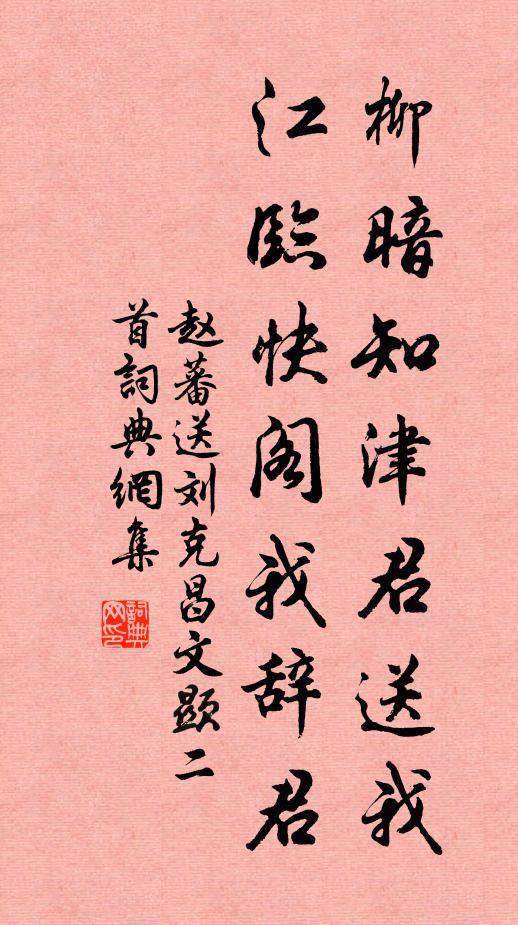 柳暗知津君送我
江臨快阁我辞君
赵蕃送刘克昌文顕二
首詞典網集
詞典
网印